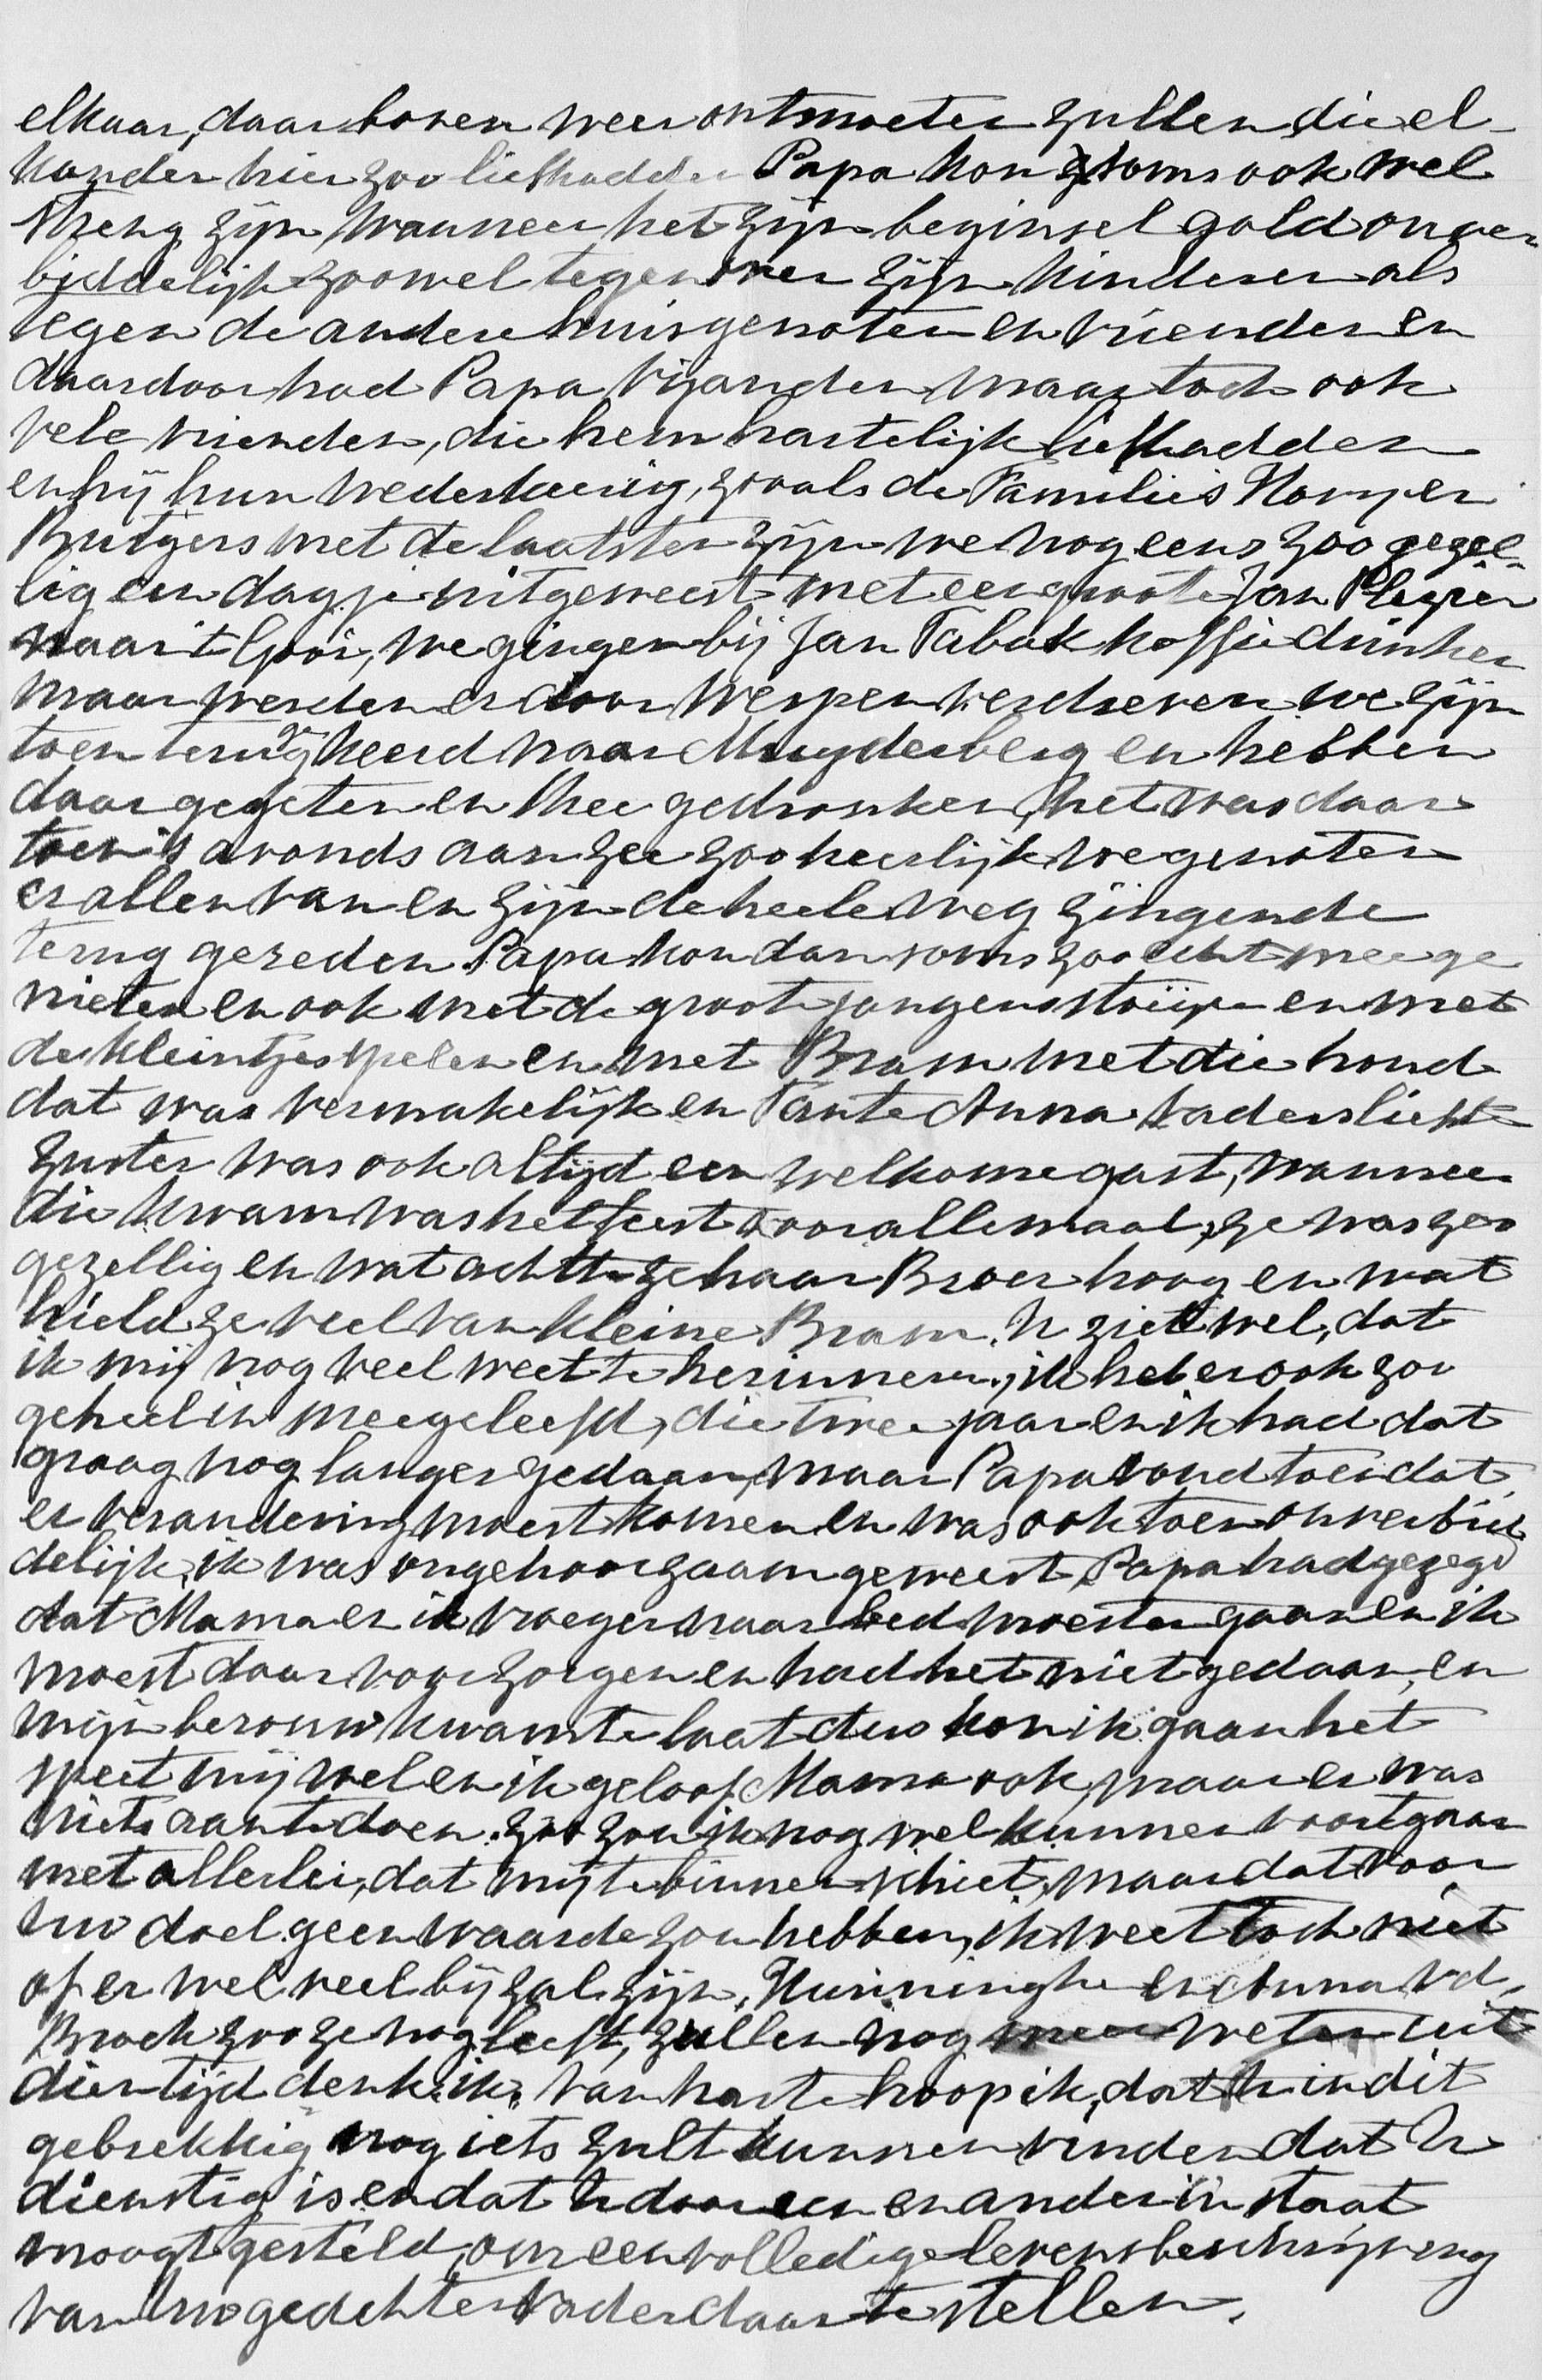 elkaar, daar boven weer ontmoeten zullen, die el-
kander hier zoo liefhadden Papa kon soms ook wel
streng zijn, wanneer het zijn beginsel gold onver-
biddelijk zoowel tegenover zijn kinderen als
tegen de andere huisgenoten en vrienden en
daardoor had Papa vijanden maar toch ook
vele vrienden, die hem hartelijk liefhadden
en hij hun wederkeerig, zooals de Families Kamper
Rutgers met de laatsten zijn we nog eens zoo gezel-
lig een dagje uitgeweest met een groote Jan Plezier
naar 't Gooi, we gingen bij Jan Tabak koffie drinken
maar werden er door wespen verdreven we zijn
toen teruggekeerd naar Muyderberg en hebben
daar gegeten en thee gedronken, het was daar
toen 's avonds aan zee zoo heerlijk we genoten
er allen van en zijn de heele weg zingende
terug gereden Papa kon dan soms zoo echt meege
nieten en ook met de groote jongens stoeijen en met
de kleintjes spelen en met Bram met die hond
dat was vermakelijk en Tante Anna vaders liefste
zuster was ook altijd een welkome gast, wanneer
die kwam was het feest voor allemaal, ze was zoo
gezellig en wat achtte ze haar Broer hoog en wat
hield ze veel van kleine Bram. U ziet wel, dat
ik mij nog veel weet te herinneren, ik heb er ook zoo
geheel in meegeleefd, die twee jaar en ik had dat
graag nog langer gedaan, maar Papa vond toen dat
er verandering moest komen en was ook toen onverbid
delijk, ik was ongehoorzaam geweest, Papa had gezegd
dat Mama en ik vroeger naar bed moesten gaan en ik
moest daar voor zorgen en had het niet gedaan, en
mijn berouw kwam te laat dus kon ik gaan het
speet mij wel en ik geloof Mama ook, maar er was
niets aan te doen. Zoo zou ik nog wel kunnen voortgaan
met allerlei, dat mij te binnen schiet, maar dat voor
Uw doel geen waarde zou hebben, ik weet toch niet
of er wel veel bij zal zijn, Kuininghe en Anna v.d.
Broek zoo ze nog leeft, zullen nog meer weten uit
dien tijd denk ik, van harte hoop ik, dat U in dit
gebrekkig nog iets zult kunnen vinden dat U
dienstig is en dat U door een en ander in staat
moogt gesteld, om een volledige levensbeschrijving
van Uw gedachten Vader daar te stellen.